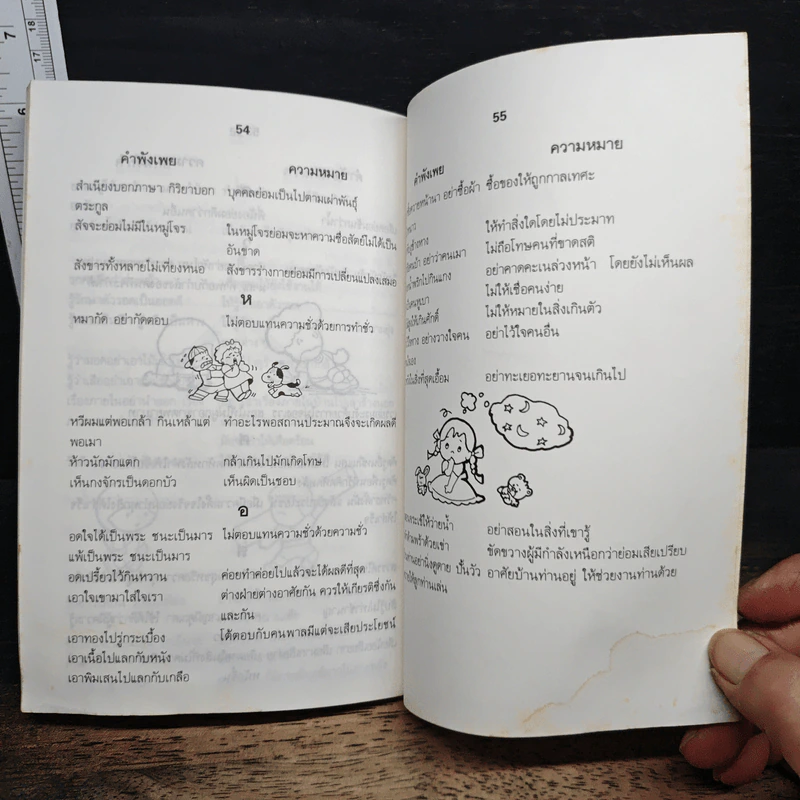 54
คำพังเพย ความหมาย
สำเนียงบอกภาษา กิริยาบอก บุคคลย่อมเป็นไปตามเผ่าพันธุ์
ตระกูล
สัจจะย่อมไม่มีในหมู่โจร ในหมู่โจรย่อมจะหาความซื่อสัตย์ไม่ได้เป็น
อันขาด
สังขารทั้งหลายไม่เที่ยงหนอ สังขารร่างกายย่อมมีการเปลี่ยนแปลงเสมอ
ห
หมากัด อย่ากัดตอบ ไม่ตอบแทนความชั่วด้วยการทำชั่ว
หวีผมแต่พอเกล้า กินเหล้าแต่ ทำอะไรพอสถานประมาณจึงจะเกิดผลดี
พอเมา
ห้าวนักมักแตก กล้าเกินไปมักเกิดโทษ
เห็นกงจักรเป็นดอกบัว เห็นผิดเป็นชอบ
อ
อดใจได้เป็นพระ ชนะเป็นมาร ไม่ตอบแทนความชั่วด้วยความชั่ว
แพ้เป็นพระ ชนะเป็นมาร
อดเปรี้ยวไว้กินหวาน ค่อยทำค่อยไปแล้วจะได้ผลดีที่สุด
เอาใจเขามาใส่ใจเรา ต่างฝ่ายต่างอาศัยกัน ควรให้เกียรติซึ่งกัน
และกัน
เอาทองไปรู่กระเบื้อง โต้ตอบกับคนพาลมีแต่จะเสียประโยชน์
เอาเนื้อไปแลกกับหนัง
เอาพิมเสนไปแลกกับเกลือ
55
คำพังเพย ความหมาย
หน้านา อย่าซื้อผ้า ซื้อของให้ถูกกาลเทศะ
หนาว
ให้ทำสิ่งใดโดยไม่ประมาท
ข้างทาง ไม่ถือโทษคนที่ขาดสติ
อย่าว่าคนเมา อย่าคาดคะเนล่วงหน้า โดยยังไม่เห็นผล
น้ำพริกไปกินแกง ไม่ให้เชื่อคนง่าย
คนหูเบา ไม่ให้หมายในสิ่งเกินตัว
ให้เกินศักดิ์ อย่าไว้ใจคนอื่น
ทาง อย่าวางใจคน
อย่าทะเยอทะยานจนเกินไป
ในสิ่งที่สุดเอื้อม
จระเข้ให้ว่ายน้ำ อย่าสอนในสิ่งที่เขารู้
พร้าด้วยเข่า ขัดขวางผู้มีกำลังเหนือกว่าย่อมเสียเปรียบ
ท่านอย่านิ่งดูดาย ปั้นวัว อาศัยบ้านท่านอยู่ ให้ช่วยงานท่านด้วย
ให้ลูกท่านเล่น